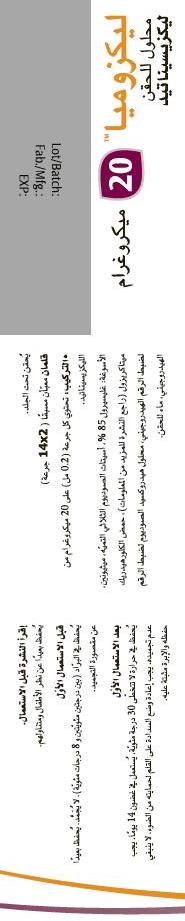 ليكزوميا™ 20 ميكروغرام
محلول للحقن
ليكزيسيناتيد
Lot/Batch:
Fab./Mfg.:
EXP:
قلمان معبآن مسبقًا (14x2 جرعة)
يُحقن تحت الجلد.
• التركيب: تحتوي كل جرعة (0.2 مل) على 20 ميكروغرام من
الليكزيسيناتيد.
الأسوغة: غليسيرول 85%، أسيتات الصوديوم الثلاثي التميّه، ميثيونين،
ميتاكريزول (راجع النشرة للمزيد من المعلومات)، حمض الكلورهيدريك
لضبط الرقم الهيدروجيني، محلول هيدروكسيد الصوديوم لضبط الرقم
الهيدروجيني، ماء للحقن.
إقرأ النشرة قبل الاستعمال.
يُحفظ بعيدًا عن نظر الأطفال ومتناولهم.
قبل الاستعمال الأوّل
يُحفظ في البرّاد (بين درجتين مئويّتين و8 درجات مئويّة). لا يُجَمَّد. يُحفظ بعيدًا
عن مقصورة التجميد.
بعد الاستعمال الأوّل
يُحفظ في حرارة لا تتخطّى 30 درجة مئويّة. يُستعمل في غضون 14 يومًا. يجب
عدم تجميده. يجب إعادة وضع السدادة على القلم لحمايته من الضوء. لا ينبغي
حفظه والإبرة مثبتة عليه.